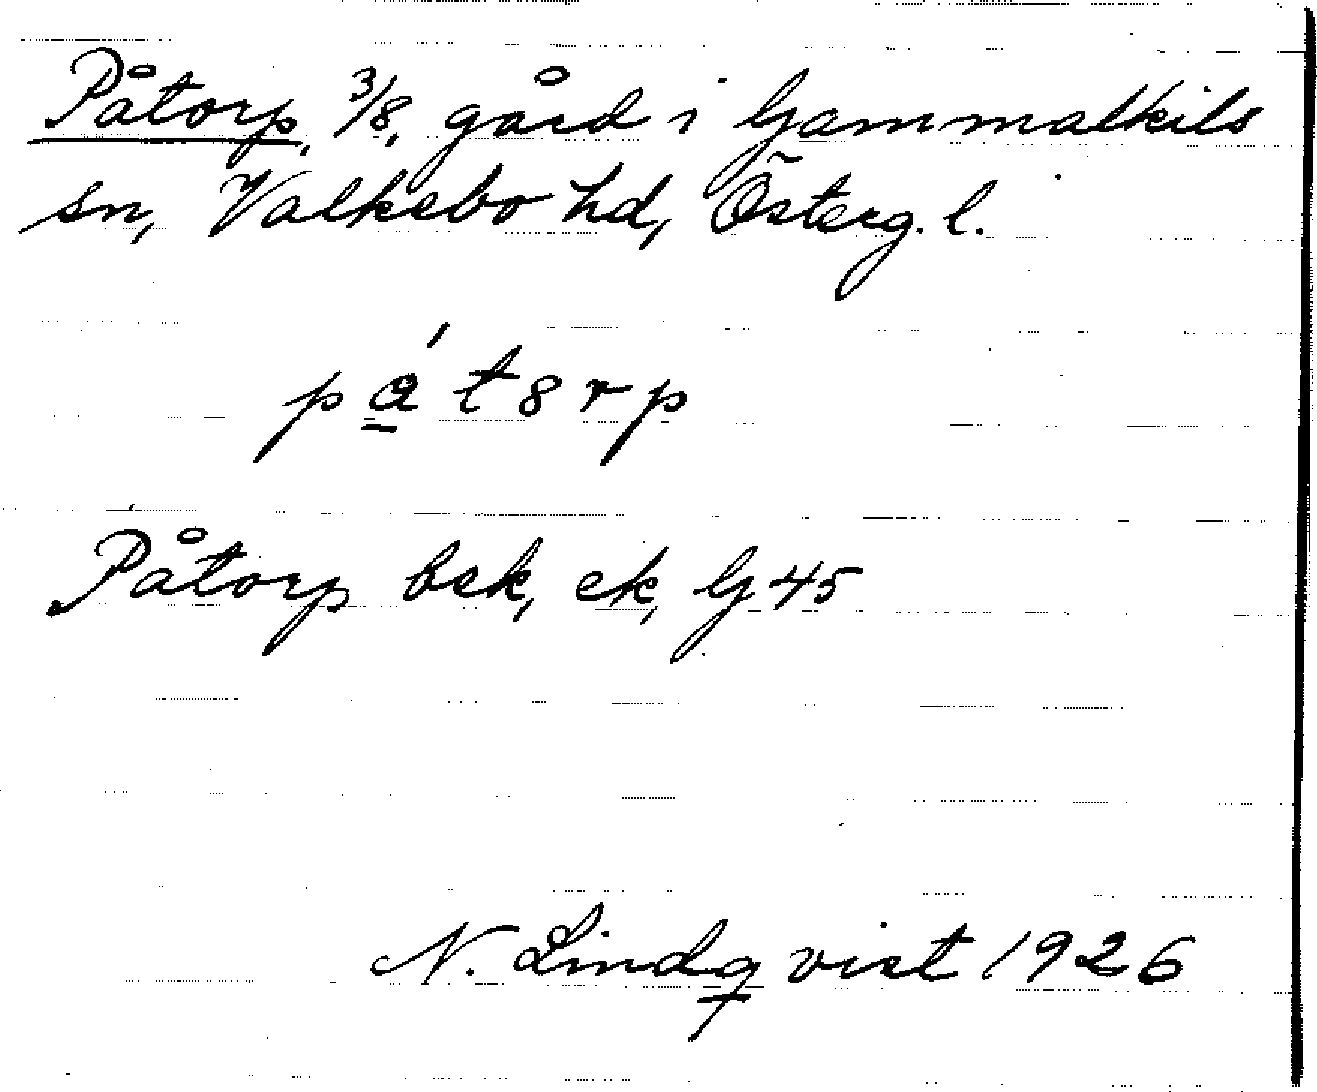 Påtorp, 3/8, gård i Gammalkils
sn, Valkebo hd, Österg. l.
pa̱´t8rp
Påtorp bek, ek, G 45
N. Lindqvist 1926